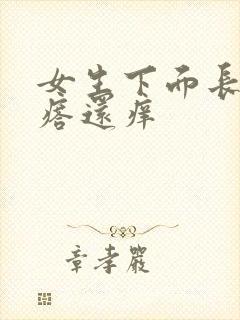 女生下面長
痞還痒
章孝嚴